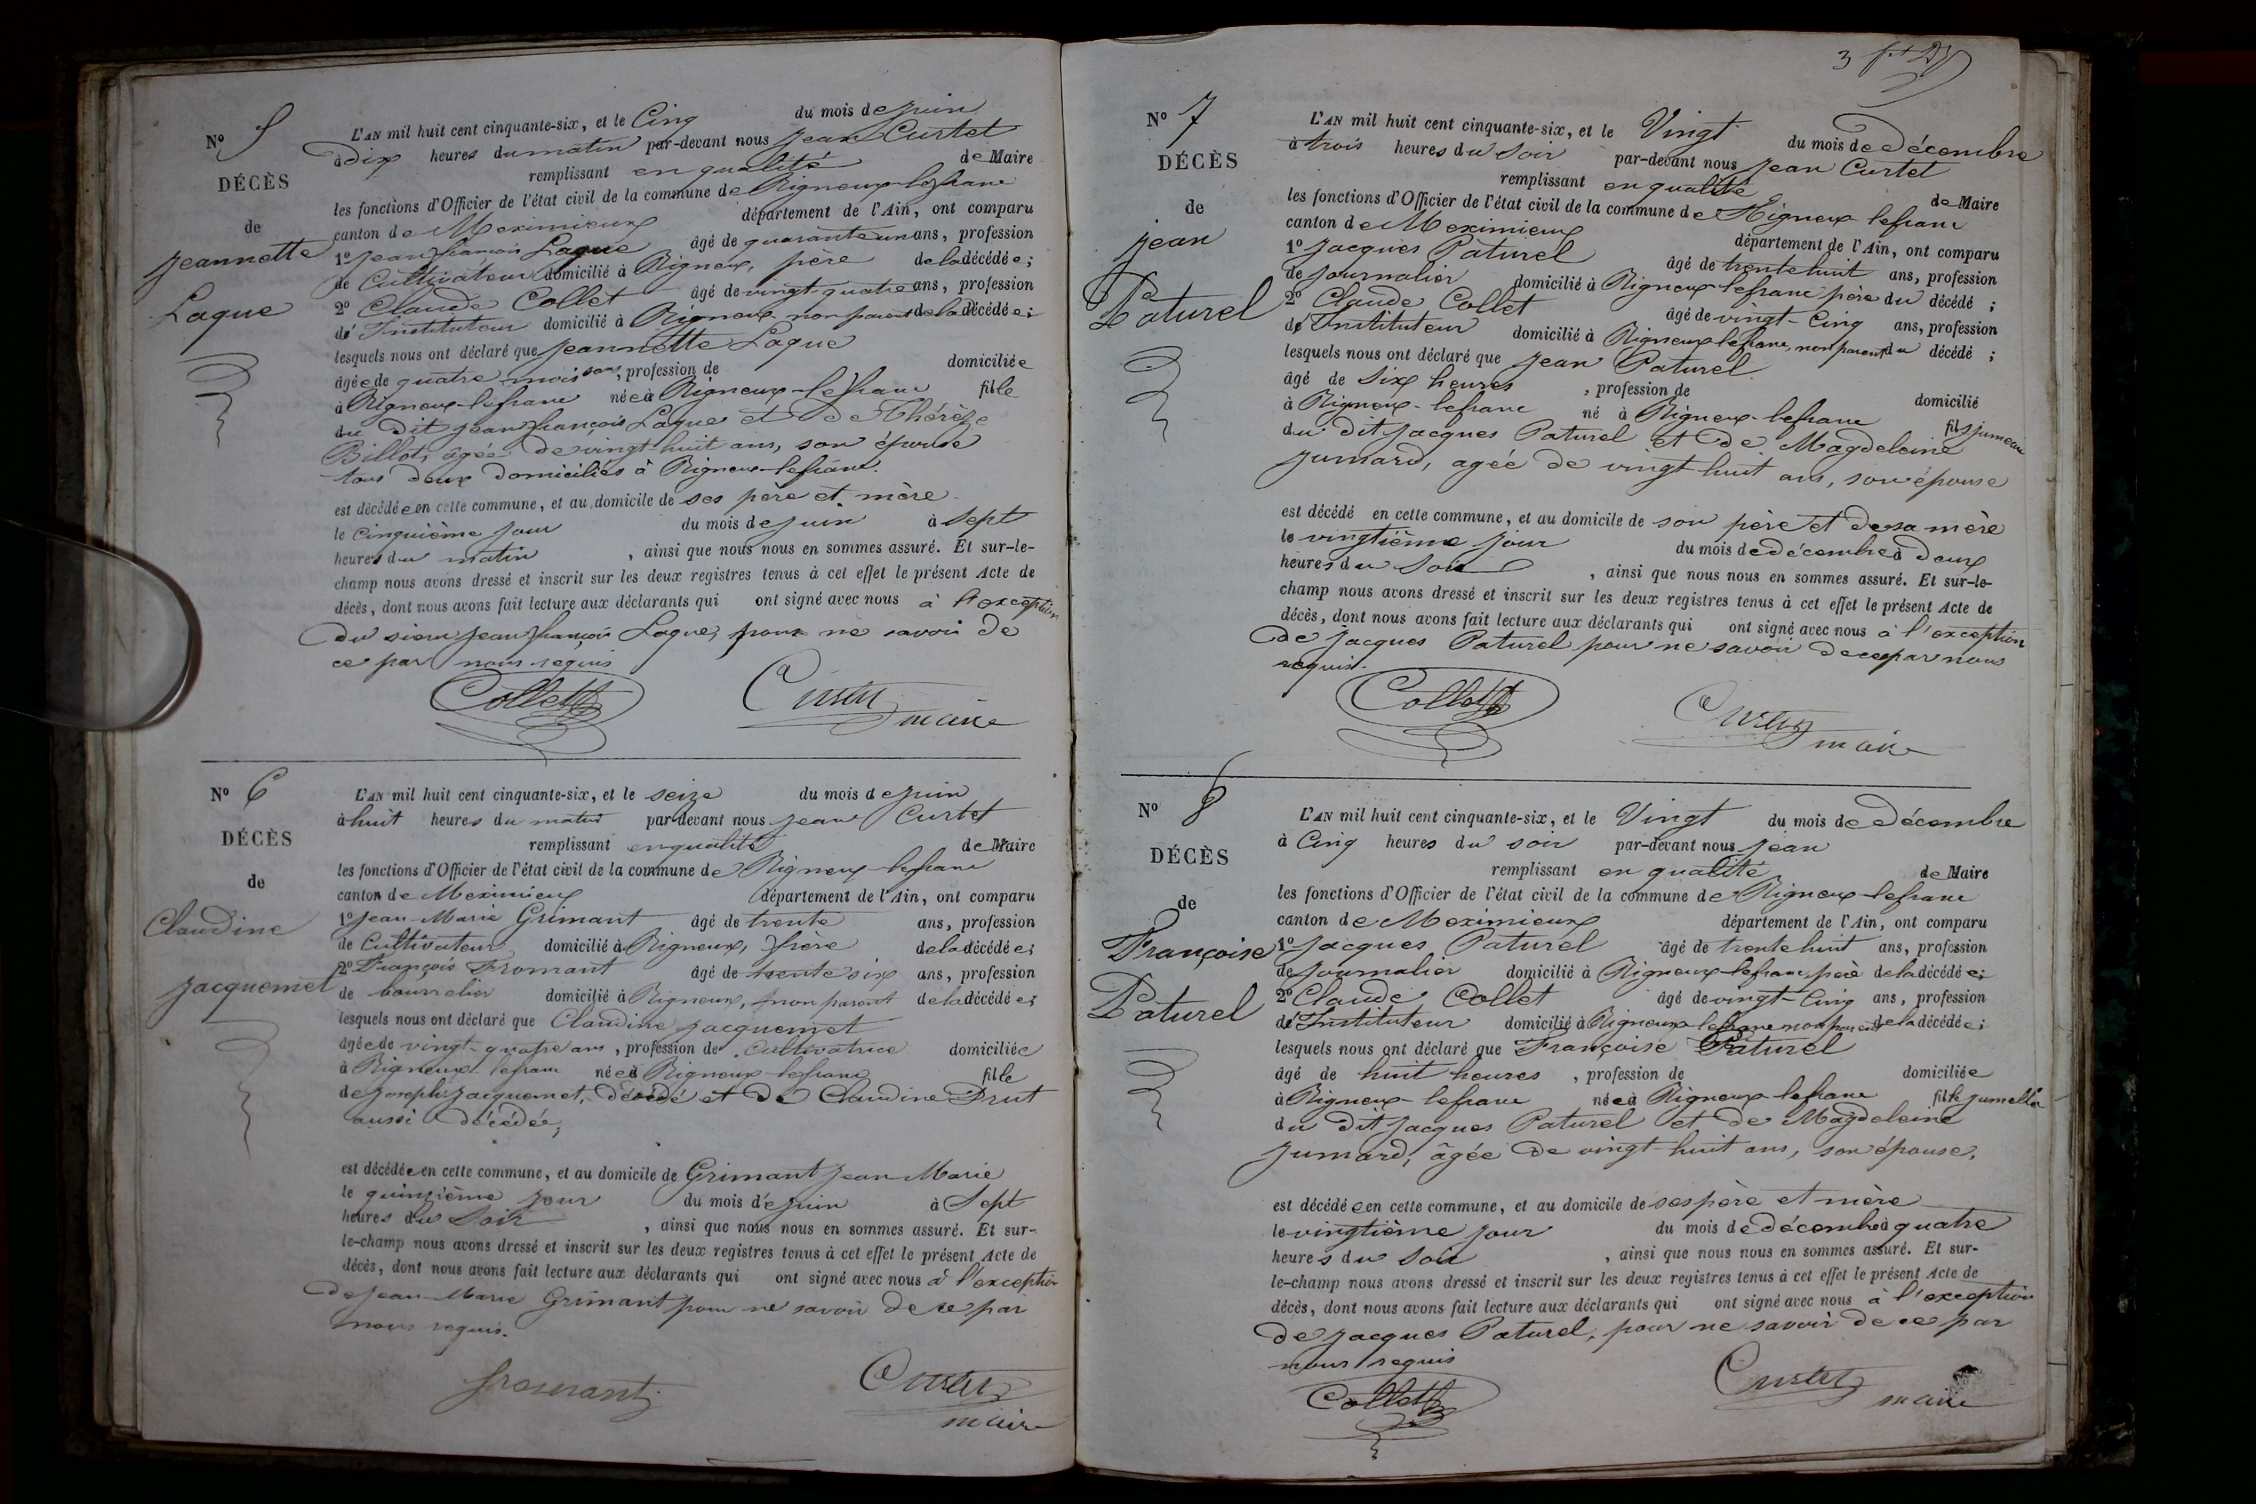 Nº 5
DÉCÈS
de
Jeannette
Laque
L'AN mil huit cent cinquante-six, et le Cinq du mois de juin
à dix heures du matin par-devant nous Jean Curtet
remplissant en qualité de Maire
les fonctions d'Officier de l'état civil de la commune de Rigneux-lefranc
canton de Meximieux département de l'Ain, ont comparu
1º Jean françois Laque âgé de quarante un ans, profession
de Cultivateur domicilié à Rigneux, père de la décédée;
2º Claude Collet âgé de vingt-quatre ans, profession
d'Instituteur domicilié à Rigneux non parent de la décédée;
lesquels nous ont déclaré que Jeannette Laque
âgée de quatre mois, profession de domiciliée
à Rigneux-lefranc née à Rigneux-lefranc fille
du dit Jean françois Laque et de Thérèze
Billot, âgée de vingt-huit ans, son épouse
tous deux domiciliés à Rigneux-lefranc.
est décédée en cette commune, et au domicile de ses père et mère
le cinquième jour du mois de juin à sept
heures du matin, ainsi que nous nous en sommes assuré. Et sur-le-
champ nous avons dressé et inscrit sur les deux registres tenus à cet effet le présent Acte de
décès, dont nous avons fait lecture aux déclarants qui ont signé avec nous à l'exception
du sieur Jean françois Laque, pour ne savoir de
ce par nous requis
Collet Curtet
maire
Nº 6
DÉCÈS
de
Claudine
Jacquemet
L'AN mil huit cent cinquante-six, et le seize du mois de juin
à huit heures du matin par-devant nous Jean Curtet
remplissant en qualité de Maire
les fonctions d'Officier de l'état civil de la commune de Rigneux-lefranc
canton de Meximieux département de l'Ain, ont comparu
1º Jean-Marie Grimant âgé de trente ans, profession
de Cultivateur domicilié à Rigneux, frère de la décédée;
2º François Fromant âgé de trente six ans, profession
de bourrelier domicilié à Rigneux, non parent de la décédée;
lesquels nous ont déclaré que Claudine Jacquemet
âgée de vingt-quatre ans, profession de Cultivatrice domiciliée
à Rigneux lefranc née à Rigneux-lefranc fille
de Joseph Jacquemet, décédé et de Claudine Prut
aussi décédée;
est décédée en cette commune, et au domicile de Grimant Jean-Marie
le quinzième jour du mois de juin à Sept
heures du Soir, ainsi que nous nous en sommes assuré. Et sur-
le-champ nous avons dressé et inscrit sur les deux registres tenus à cet effet le présent Acte de
décès, dont nous avons fait lecture aux déclarants qui ont signé avec nous à l'exception
de Jean-Marie Grimant pour ne savoir de ce par
nous requis.
fromant Curtet
maire
3
Nº 7
DÉCÈS
de
Jean
Paturel
L'AN mil huit cent cinquante-six, et le Vingt du mois de décembre
à trois heures du Soir par-devant nous Jean Curtet
remplissant en qualité de Maire
les fonctions d'Officier de l'état civil de la commune de Rigneux lefranc
canton de Meximieux département de l'Ain, ont comparu
1º Jacques Paturel âgé de trente huit ans, profession
de journalier domicilié à Rigneux-lefranc père du décédé;
2º Claude Collet âgé de vingt-Cinq ans, profession
d'Instituteur domicilié à Rigneux lefranc, non parent du décédé;
lesquels nous ont déclaré que Jean Paturel
âgé de Six heures, profession de domicilié
à Rigneux-lefranc né à Rigneux-lefranc fils jumeau
du dit Jacques Paturel et de Magdeleine
Jumard, agée de vingt huit ans, son épouse
est décédé en cette commune, et au domicile de son père et de sa mère
le vingtième jour du mois de décembre à deux
heures du Soir, ainsi que nous nous en sommes assuré. Et sur-le-
champ nous avons dressé et inscrit sur les deux registres tenus à cet effet le présent Acte de
décès, dont nous avons fait lecture aux déclarants qui ont signé avec nous à l'exception
de Jacques Paturel pour ne savoir de ce par nous
requis.
Collet Curtet
maire
Nº 8
DÉCÈS
de
Françoise
Paturel
L'AN mil huit cent cinquante-six, et le Vingt du mois de décembre
à Cinq heures du soir par-devant nous Jean
remplissant en qualité de Maire
les fonctions d'Officier de l'état civil de la commune de Rigneux-lefranc
canton de Meximieux département de l'Ain, ont comparu
1º Jacques Paturel âgé de trente huit ans, profession
de journalier domicilié à Rigneux-lefranc, père de la décédée;
2º Claude Collet âgé de vingt-Cinq ans, profession
d'Instituteur domicilié à Rigneux-lefranc non parent de la décédée;
lesquels nous ont déclaré que Françoise Paturel
âgé de huit heures, profession de domiciliée
à Rigneux-lefranc née à Rigneux lefranc fille jumelle
du dit Jacques Paturel et de Magdeleine
Jumard, âgée de vingt-huit ans, son épouse.
est décédée en cette commune, et au domicile de ses père et mère
le vingtième jour du mois de décembre à quatre
heures du Soir, ainsi que nous nous en sommes assuré. Et sur-
le-champ nous avons dressé et inscrit sur les deux registres tenus à cet effet le présent Acte de
décès, dont nous avons fait lecture aux déclarants qui ont signé avec nous à l'exception
de Jacques Paturel, pour ne savoir de ce par
nous requis
Collet Curtet
maire